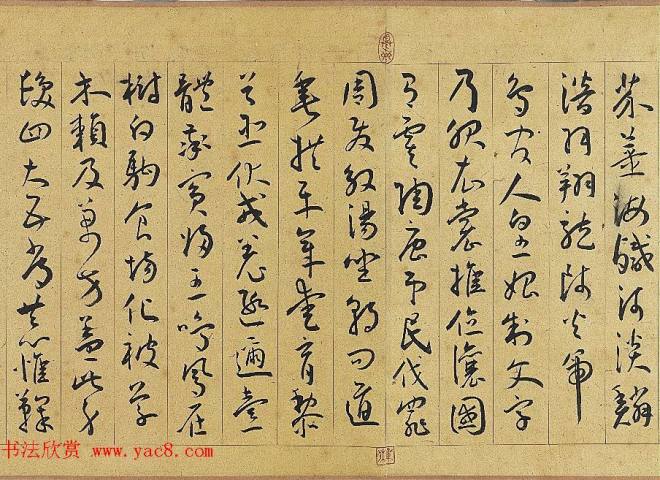 芥薑海鹹河淡鱗
潛羽翔龍師火帝
鳥官人皇始制文字
乃服衣裳推位讓國
有虞陶唐弔民伐罪
周發殷湯坐朝問道
垂拱平章愛育黎
首臣伏戎羌遐邇壹
體率賓歸王鳴鳳在
樹白駒食場化被草
木賴及萬方蓋此身
髮四大五常恭惟鞠
书法欣赏 www.yac8.com